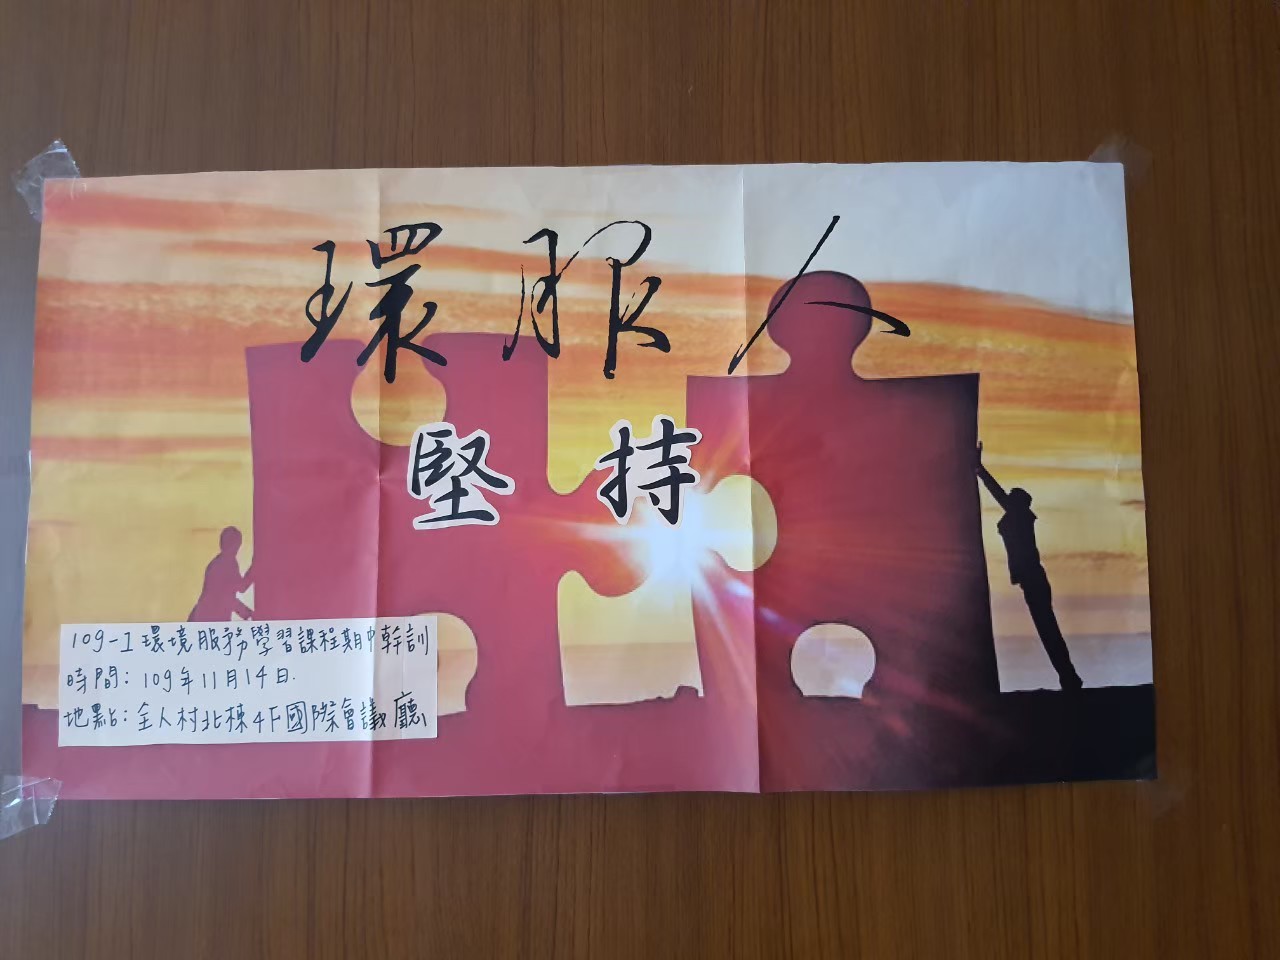 環服人
堅持
109-1環境服務學習課程期中幹訓
時間：109年11月14日.
地點：全人村北棟4F國際會議廳